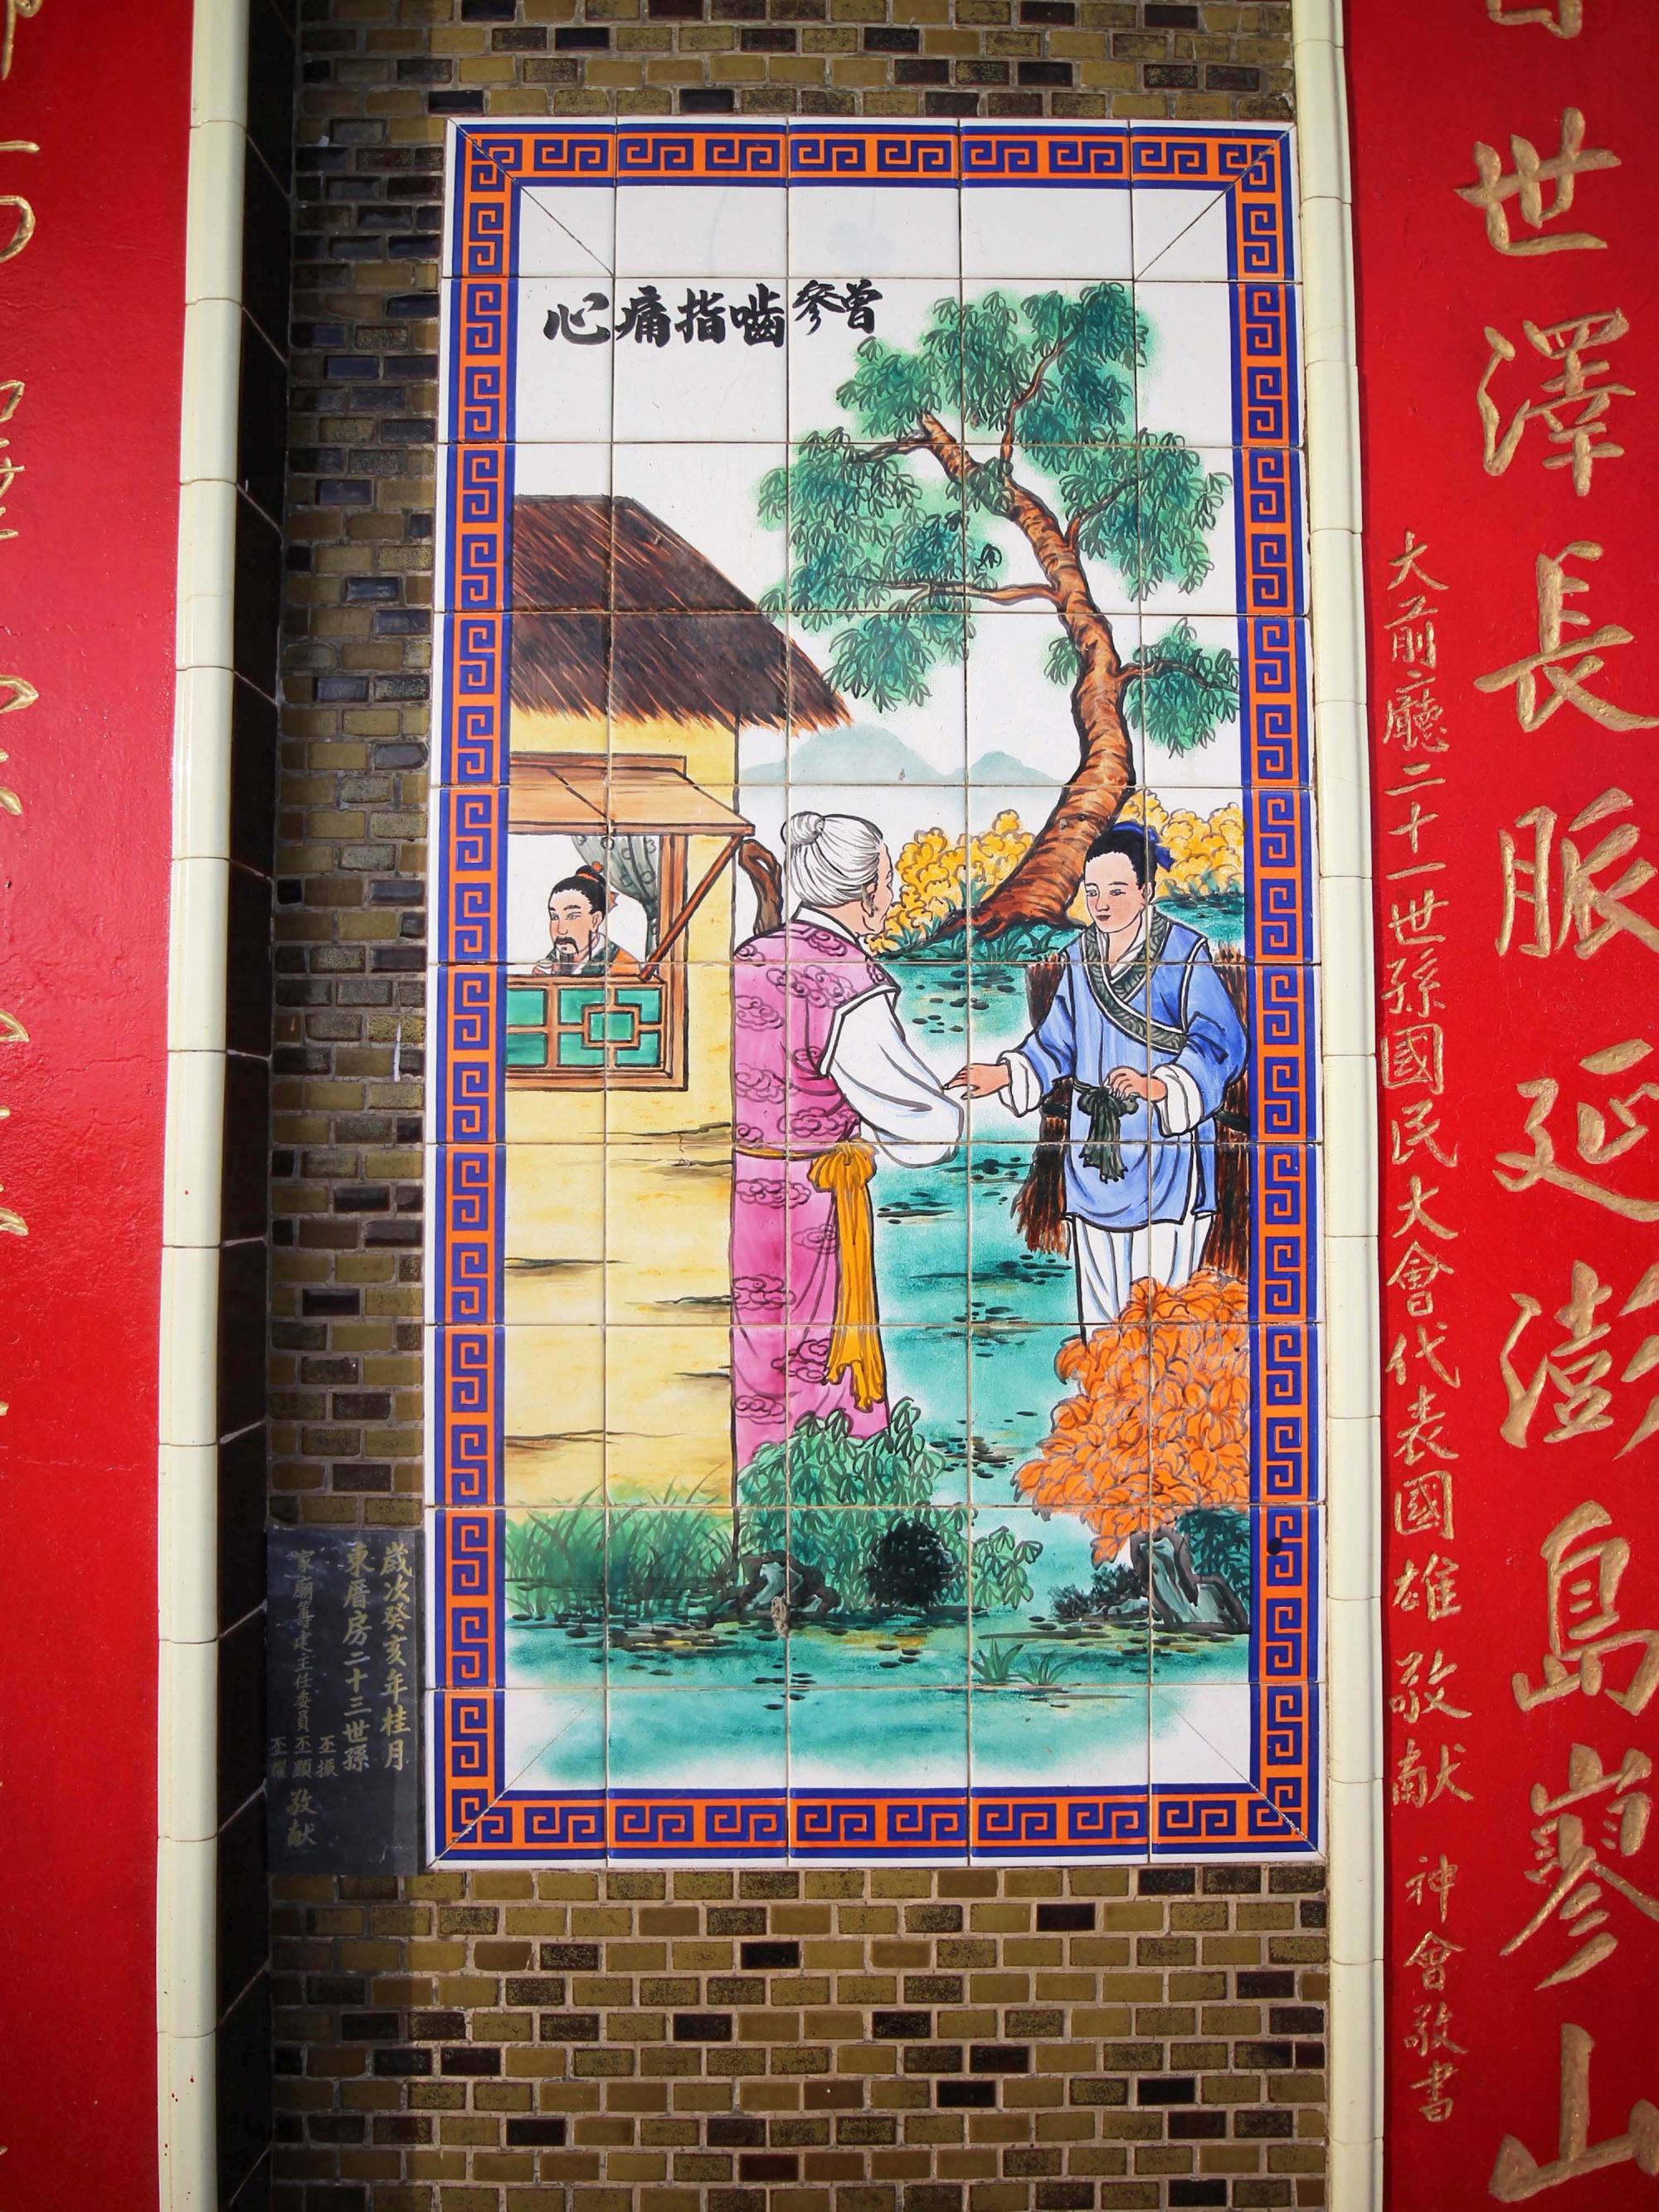 世澤長脈延澎島蓼山
大前廳二十一世孫國民大會代表國雄敬献 神會敬書
曾參嚙指痛心
歲次癸亥年桂月
東厝房二十三世孫
丕振
家廟籌建主任委員丕顯敬献